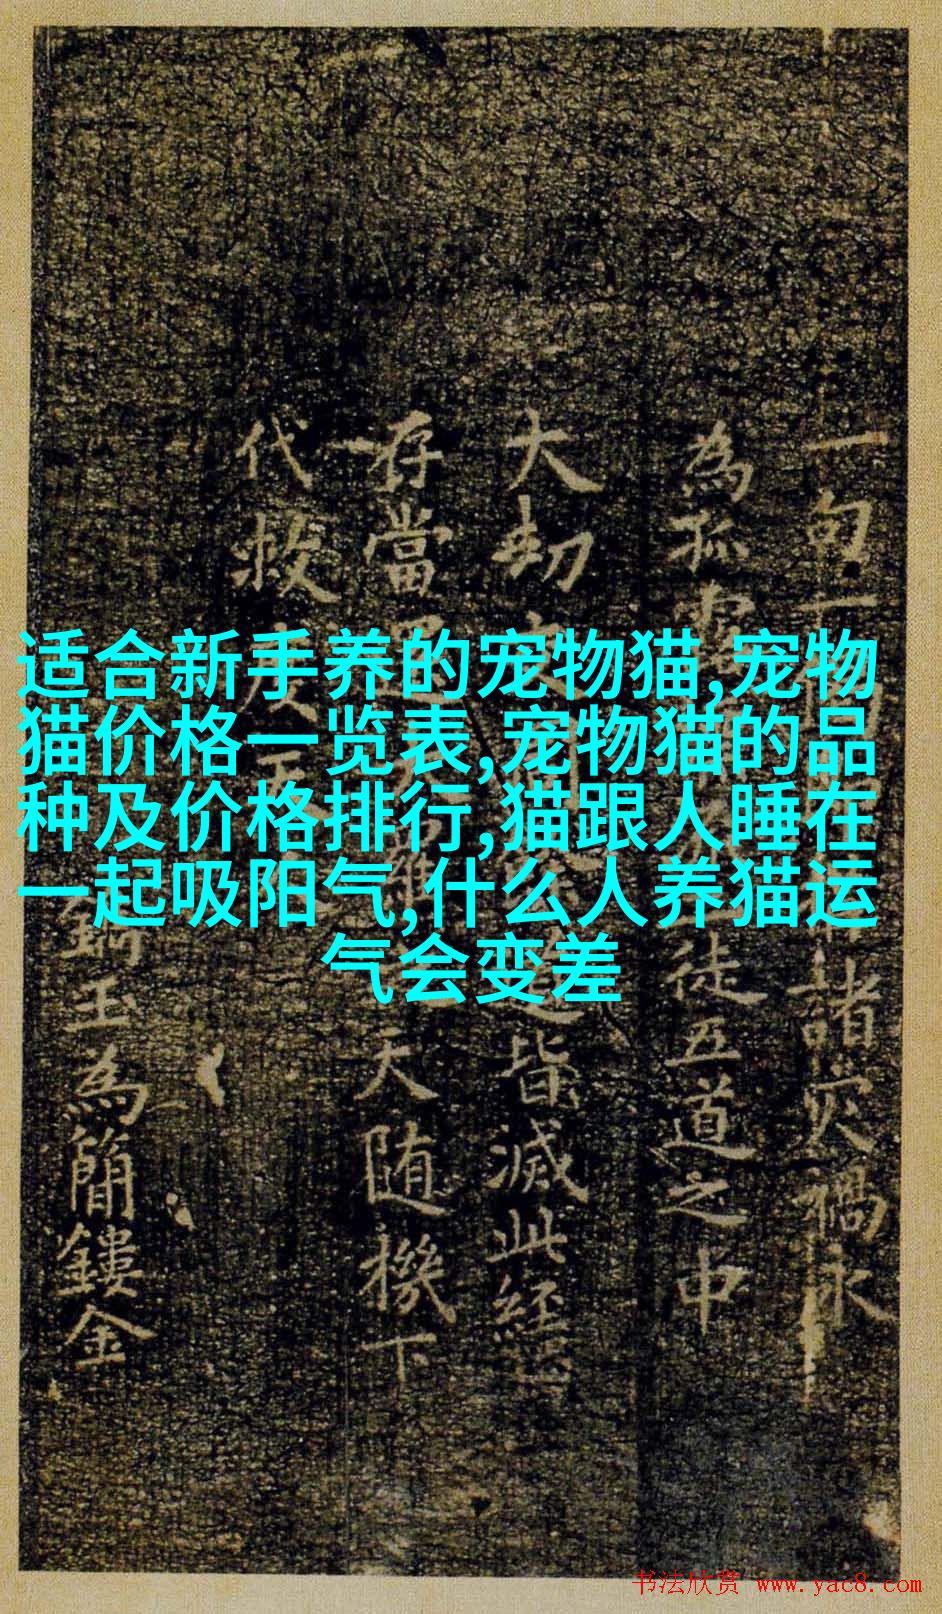 适合新手养的宠物猫,宠物
猫价格一览表,宠物猫的品
种及价格排行,猫跟人睡在
一起吸阳气,什么人养猫运
气会变差
一句一 諸灾禍永
為孤 徒五道之中
大劫 皆滅此經
存當 天随機下
代救 天
玉為簡鏤金
书法欣赏 www.yac8.com